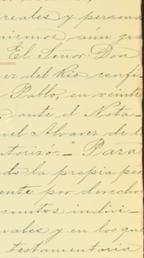 reales y persona
nirmos aun qu
El Señor Don
er del Rio confi
Pablo, en veinte
ante el Nota-
uel Alvarez de l
utorizó.- Para
do la propia per
ente por derecho
suntos indivi-
nales y en los que
testamentaria